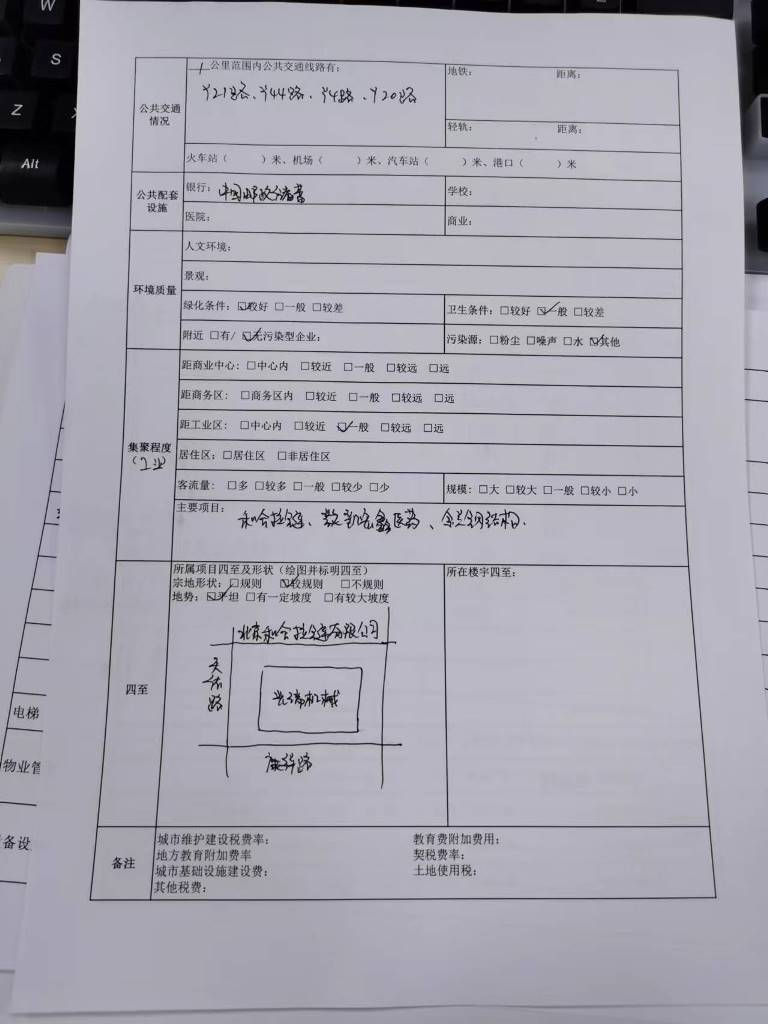 W
S
Z
Alt
公共交通情况
1 公里范围内公共交通线路有:
Y21路、Y44路、Y4路、Y20路
地铁: 距离:
轻轨: 距离:
火车站( )米、机场( )米、汽车站( )米、港口( )米
公共配套设施
银行: 中国邮政储蓄
学校:
医院:
商业:
环境质量
人文环境:
景观:
绿化条件: ☑较好 □一般 □较差
卫生条件: □较好 ☑一般 □较差
附近 □有/ ☑无污染型企业:
污染源: □粉尘 □噪声 □水 ☑其他
集聚程度
(工业)
距商业中心: □中心内 □较近 □一般 □较远 □远
距商务区: □商务区内 □较近 □一般 □较远 □远
距工业区: □中心内 □较近 ☑一般 □较远 □远
居住区: □居住区 □非居住区
客流量: □多 □较多 □一般 □较少 □少
规模: □大 □较大 □一般 □较小 □小
主要项目:
四至
所属项目四至及形状(绘图并标明四至)
宗地形状: □规则 ☑较规则 □不规则
地势: ☑平坦 □有一定坡度 □有较大坡度
所在楼宇四至:
北京和合拉链有限公司
备注
城市维护建设税费率:
教育费附加费用:
地方教育附加费率
契税费率:
城市基础设施建设费:
土地使用税:
其他税费:
电梯
物业管
备设